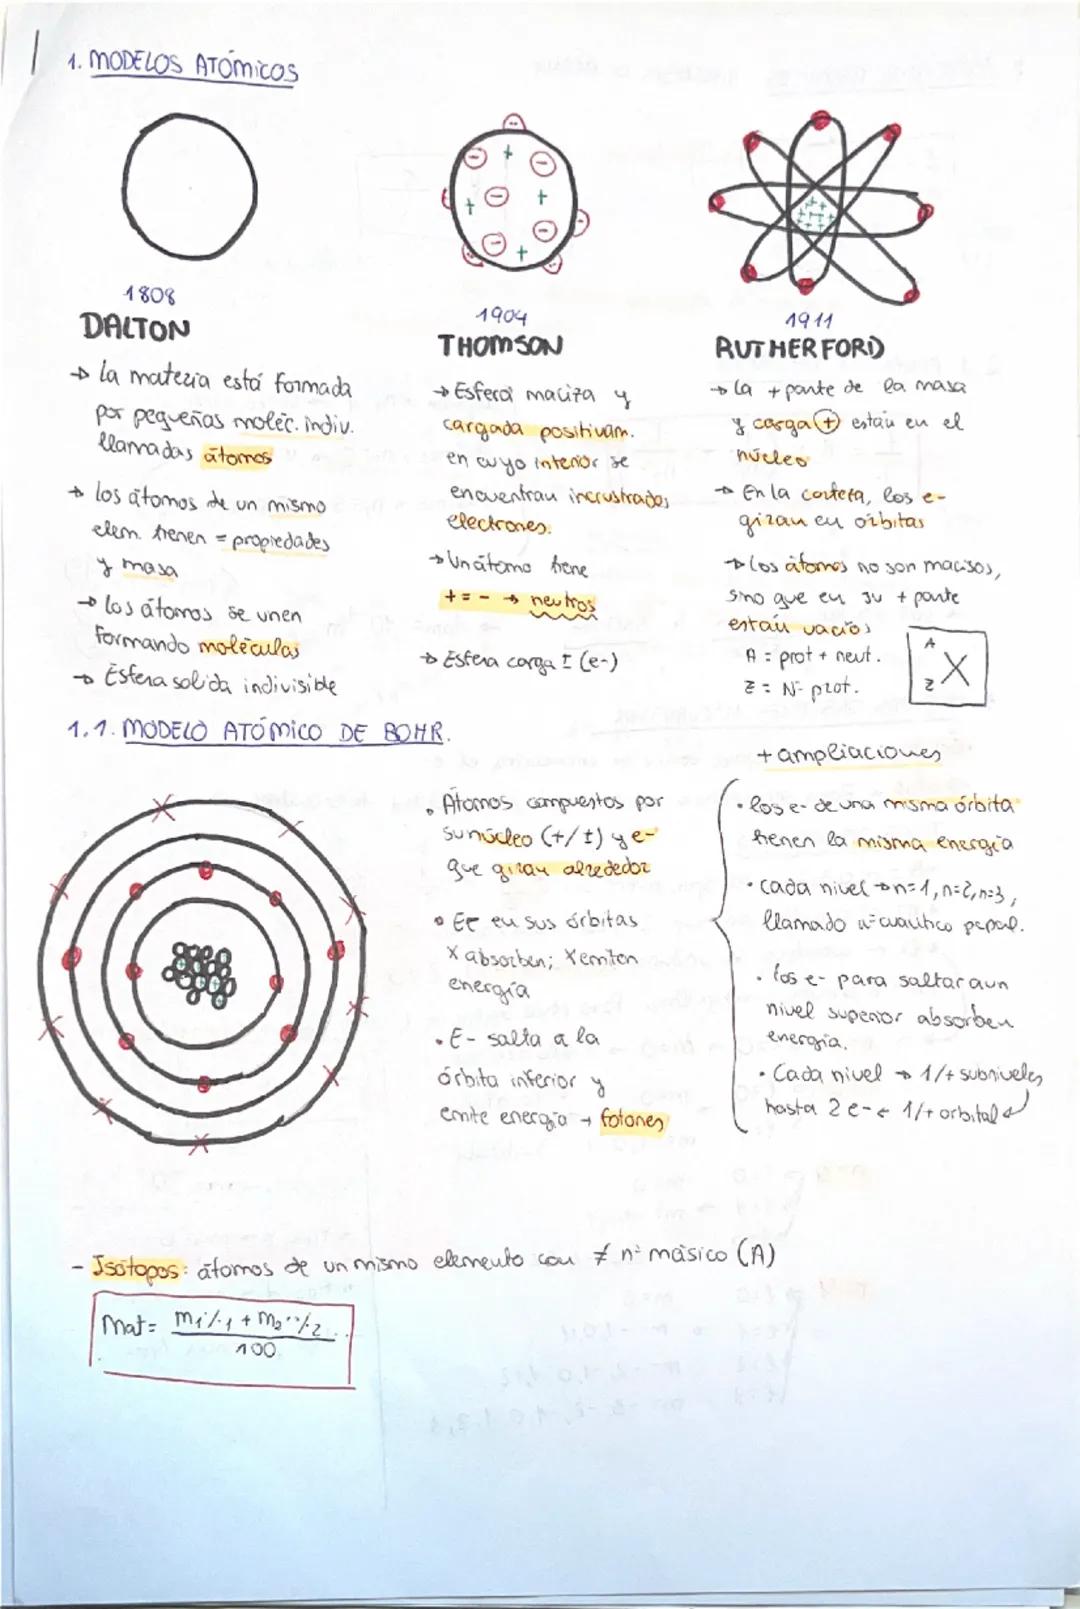 1. MODELOS ATÓMICOS
1808
DALTON
→ La materia está formada
por pequeñas moléc. indiv.
llamadas átomos
→ los átomos de un mismo
elem. tienen = propiedades
y masa
→ los átomos se unen
formando moléculas
→ Esfera solida indivisible
1904
THOMSON
→ Esfera maciza y
cargada positivam.
en cuyo interior se
encuentran incrustrados
electrones.
→ Un átomo tiene
+ = - → neutros
→ Esfera carga ± (e-)
1911
RUTHERFORD
→ La + parte de la masa
y carga + están en el
núcleo
→ En la corteza, los e-
giran en órbitas
→ Los átomos no son macisos,
sino que en su + parte
están vacíos
A = prot + neut.
Z = Nº prot.
A
X
Z
1.1. MODELO ATÓMICO DE BOHR.
· Átomos compuestos por
su núcleo (+/±) y e-
que giran alrededor
· E- en sus órbitas
X absorben; X emiten
energía
· E- salta a la
órbita inferior y
emite energía → fotones
+ ampliaciones
· los e- de una misma órbita
tienen la misma energía
· cada nivel → n=1, n=2, n=3,
llamado nº cuántico
· los e- para saltar a un
nivel superior absorben
energía.
· Cada nivel → 1/+ subniveles
hasta 2 e- ← 1/+ orbital
- Isótopos: átomos de un mismo elemento con ≠ nº másico (A)
Mat = m₁·%₁ + m₂·%₂...
100